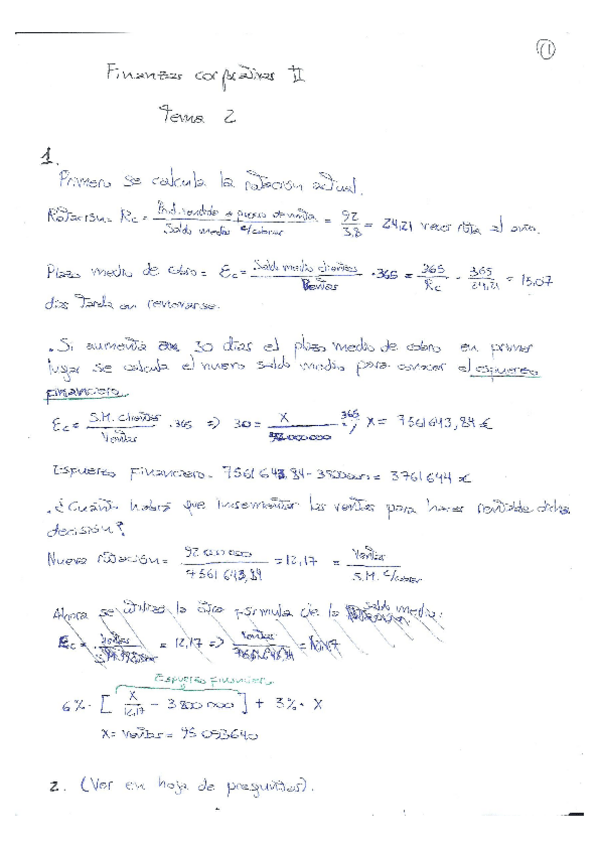 (1)
Finanzas corporativas II
Tema 2
1.
Primero se calcula la rotación actual.
Rotación = Rc = Prod. vendida a precio de venta / Saldo medio c/cobrar = 92 / 3,8 = 24,21 veces rota al año.
Plazo medio de cobro = Ec = Saldo medio clientes / Ventas · 365 = 365 / Rc = 365 / 24,21 = 15,07
días tarda en renovarse.
· Si aumenta a 30 días el plazo medio de cobro en primer
lugar se calcula el nuevo saldo medio para conocer el esfuerzo
financiero.
Ec = S.M. Clientes / Ventas · 365 => 30 = X / 92 000 000 · 365 ; X = 7561643,84 €
Esfuerzo financiero = 7561643,84 - 3800000 = 3761644 €
· ¿Cuánto habrá que incrementar las ventas para hacer rentable dicha
decisión?
Nueva rotación = 92 000 000 / 7561643,84 = 12,17 = Ventas / S.M. c/cobrar
Ahora se utiliza la otra fórmula de la saldo medio:
Ec = Ventas = 12,17 => Ventas / = 12,17
Esfuerzo financiero
6% · [ X / 12,17 - 3 800 000 ] + 3% · X
X = ventas = 95 053640
2. (Ver en hoja de preguntas).